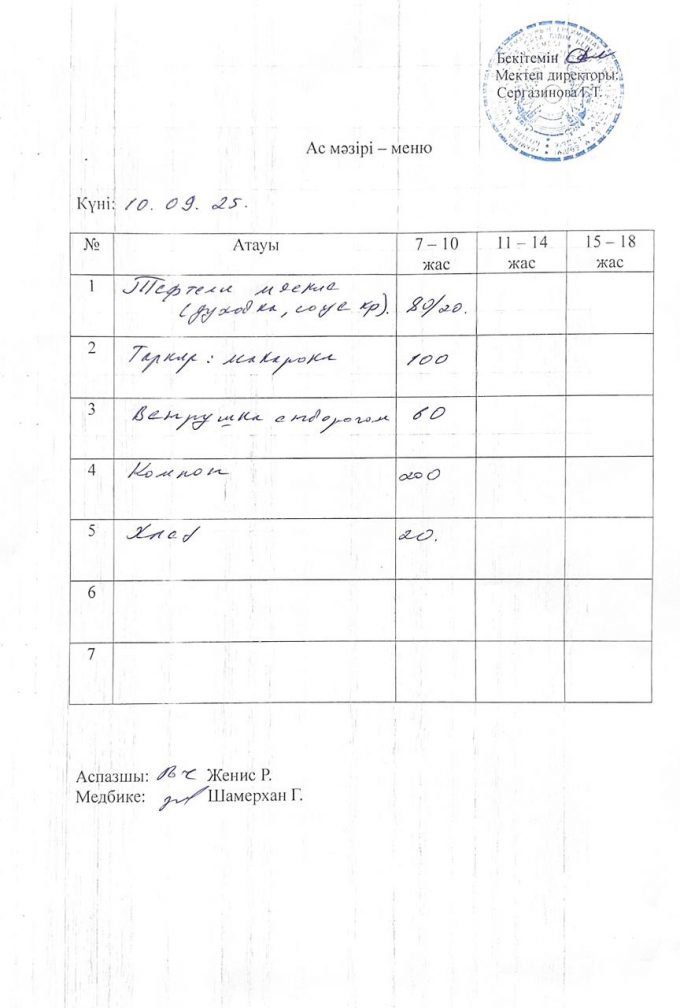 Бекітемін
Мектеп директоры:
Сергазинова Г.Т.
Ас мәзірі – меню
Күні: 10. 09. 25.
№ Атауы 7 – 10 жас 11 – 14 жас 15 – 18 жас
1 Тефтели
(духовка, соус кр). 80/20.
2 Гарнир: макароны 100
3 Ватрушка с творогом 60
4 Компот 200
5 Хлеб 20.
6
7
Аспазшы: Женис Р.
Медбике: Шамерхан Г.